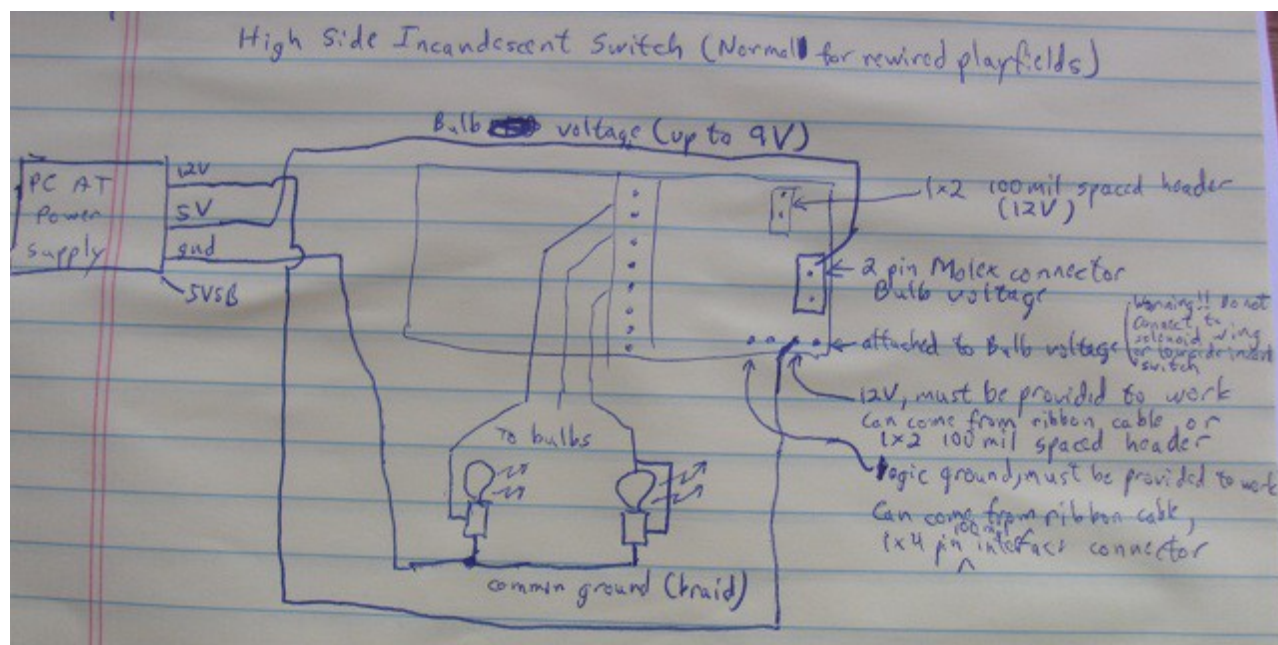 High Side Incandescent Switch (Normal for rewired playfields)
Bulb voltage (up to 9V)
PC AT
Power
Supply
12V
5V
gnd
5VSB
1x2 100 mil spaced header
(12V)
2 pin Molex connector
Bulb voltage
attached to Bulb voltage
Warning!! Do not
connect to
solenoid wing
or lowside incand
switch
12V, must be provided to work
Can come from ribbon cable or
1x2 100 mil spaced header
logic ground, must be provided to work
Can come from ribbon cable,
1x4 pin 100 mil interface connector
To bulbs
common ground (braid)